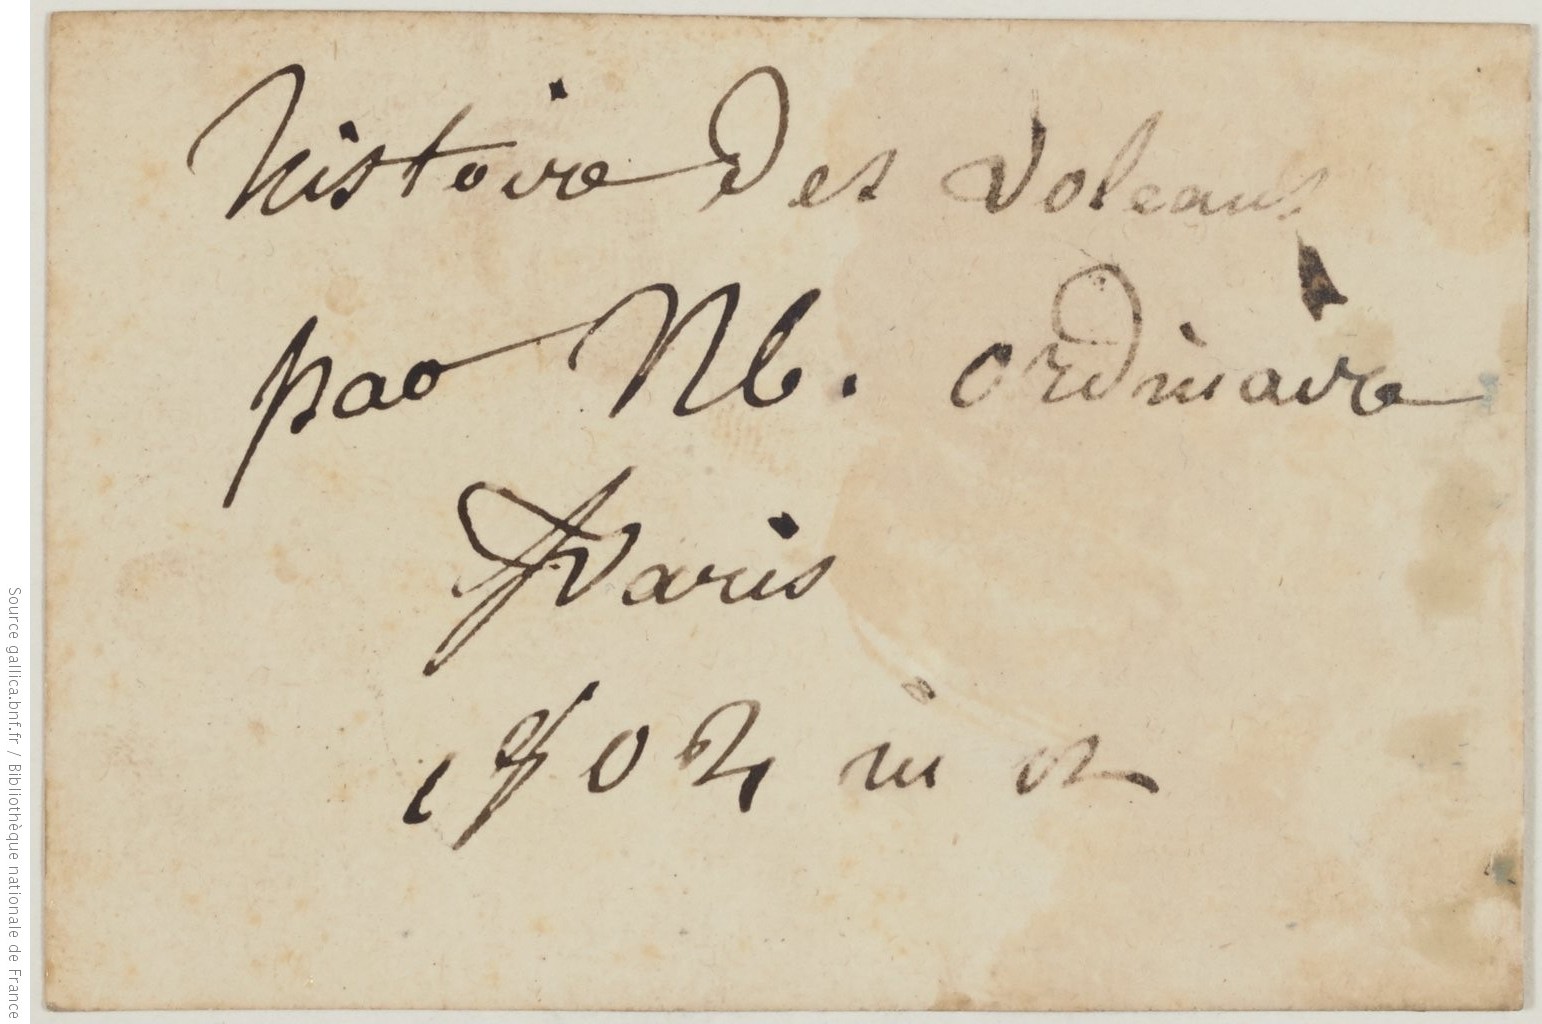 histoire des Volcans
par Mb. ordinaire
Paris
1802 in 12
Source gallica.bnf.fr / Bibliothèque nationale de France